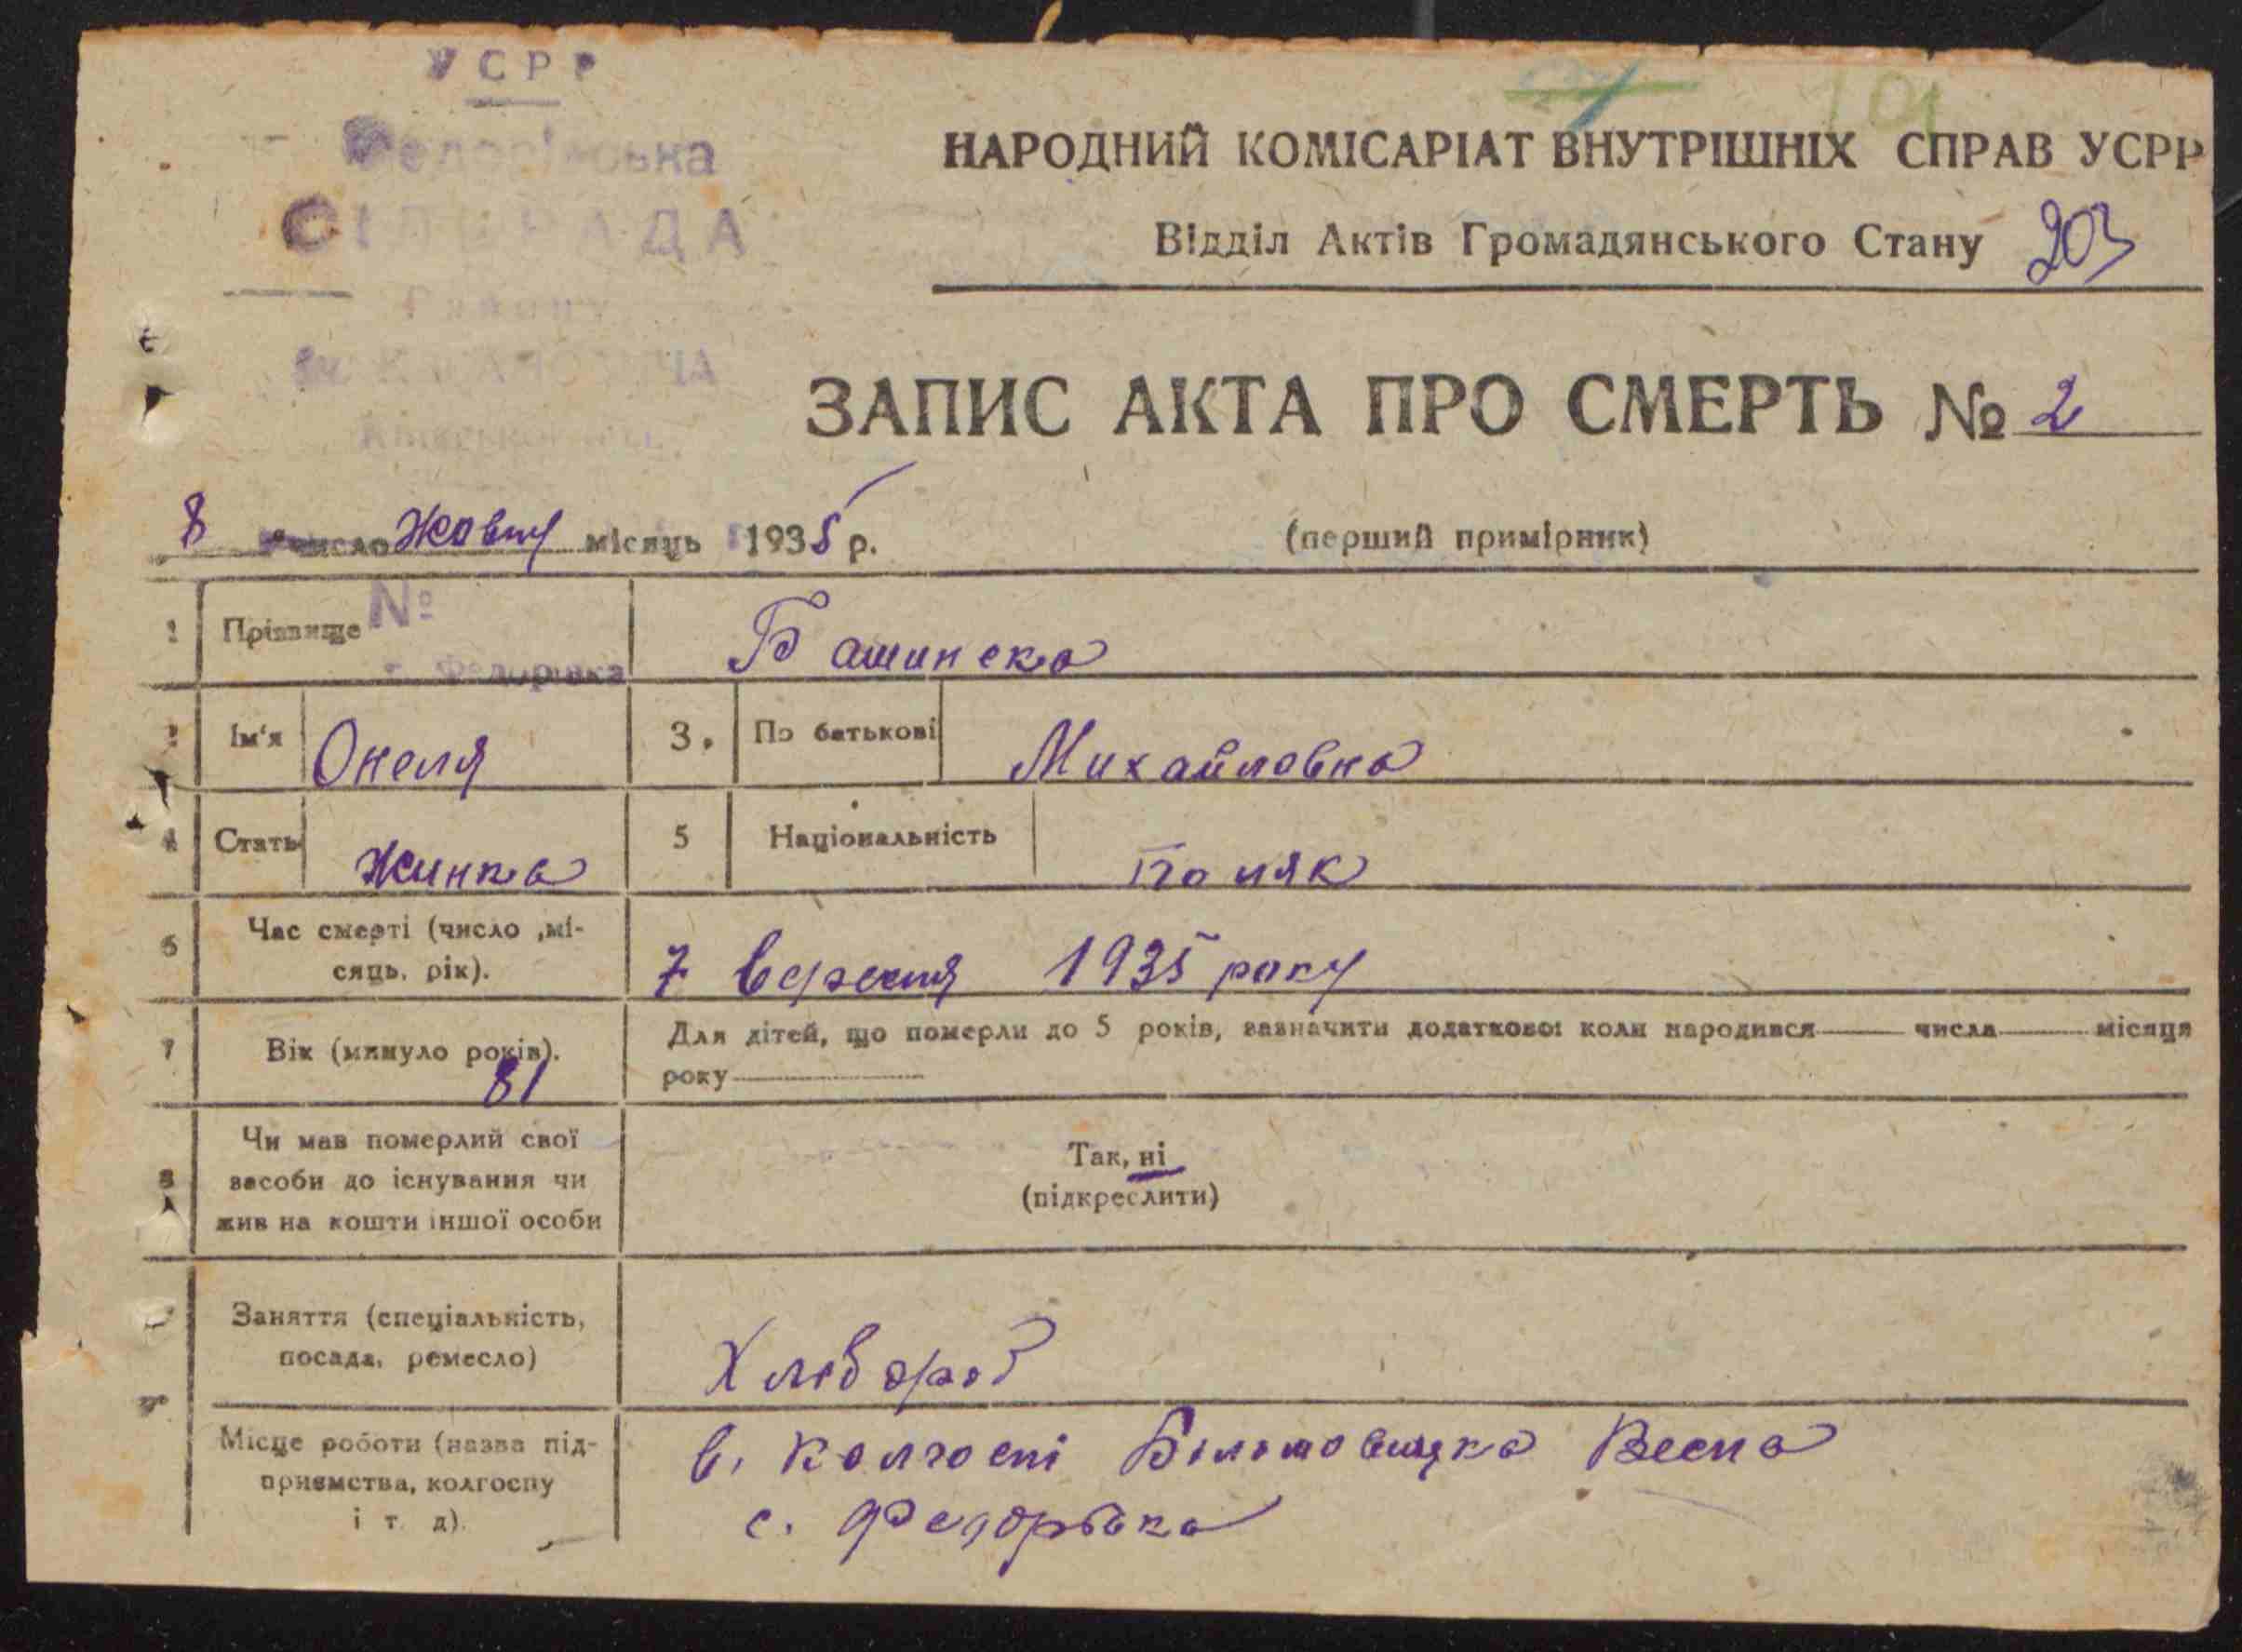 УСРР
Федорівська
СІЛЬРАДА
Району
ім. КАГАНОВИЧА
Київської обл.
101
НАРОДНИЙ КОМІСАРІАТ ВНУТРІШНІХ СПРАВ УСРР
Відділ Актів Громадянського Стану 203
ЗАПИС АКТА ПРО СМЕРТЬ № 2
8 число Жовтя місяць 1935 р.
(перший примірник)
№
с. Федорівка
1 Прізвище Башинска
2 Ім'я Онеля 3. По батькові Михайловна
4 Стать Жинка 5 Національність Поляк
6 Час смерті (число ,мі-
сяць, рік). 7 вересня 1935 року
7 Вік (минуло років). 81 Для дітей, що померли до 5 років, зазначити додатково: коли народився числа місяця
року
8 Чи мав померлий свої
засоби до існування чи
жив на кошти іншої особи
Так, ні
(підкреслити)
Заняття (спеціальність,
посада, ремесло) Хлібороб
Місце роботи (назва під-
приємства, колгоспу
і т. д). в. колгоспі Весна
с. Федорівка